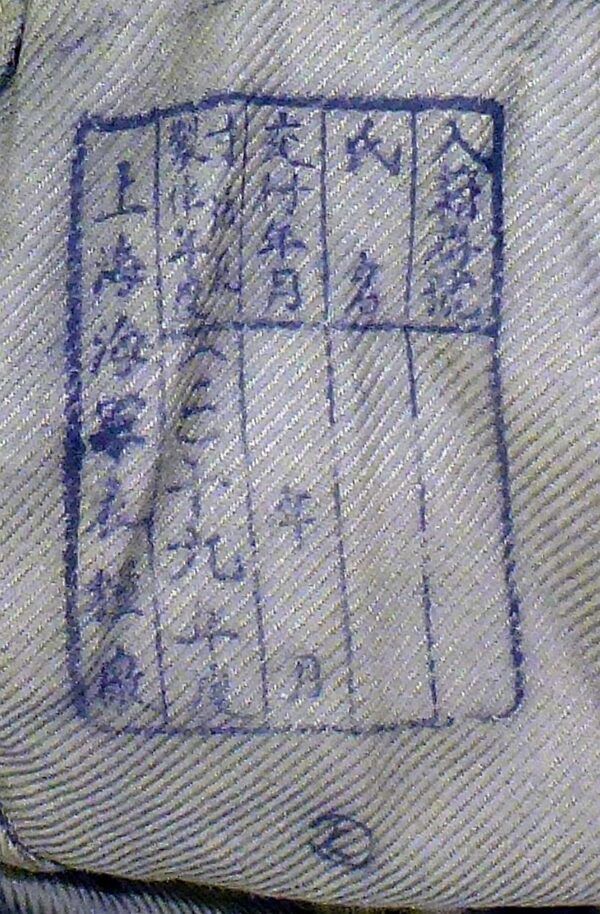 入籍番號
氏名
交付年月
年 月
製作年度
十九年度
上海海軍衣糧廠